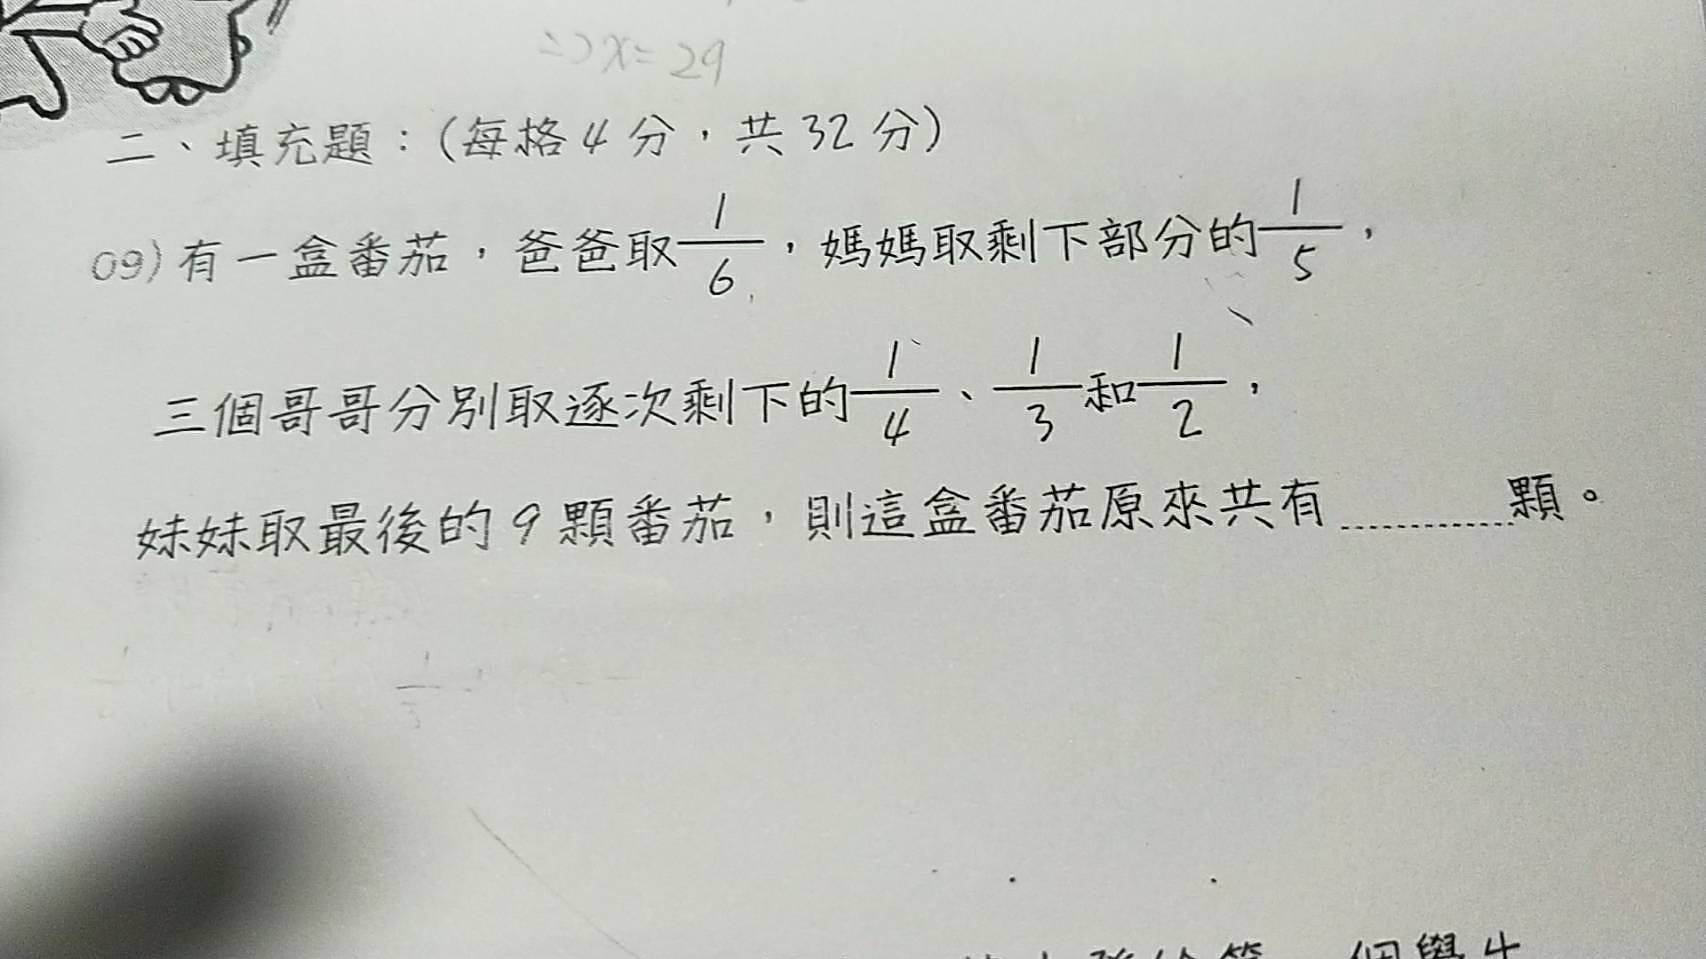 ∴x=29
二、填充題：(每格4分，共32分)
09)有一盒番茄，爸爸取1/6，媽媽取剩下部分的1/5，
三個哥哥分別取逐次剩下的1/4、1/3和1/2，
妹妹取最後的9顆番茄，則這盒番茄原來共有............顆。